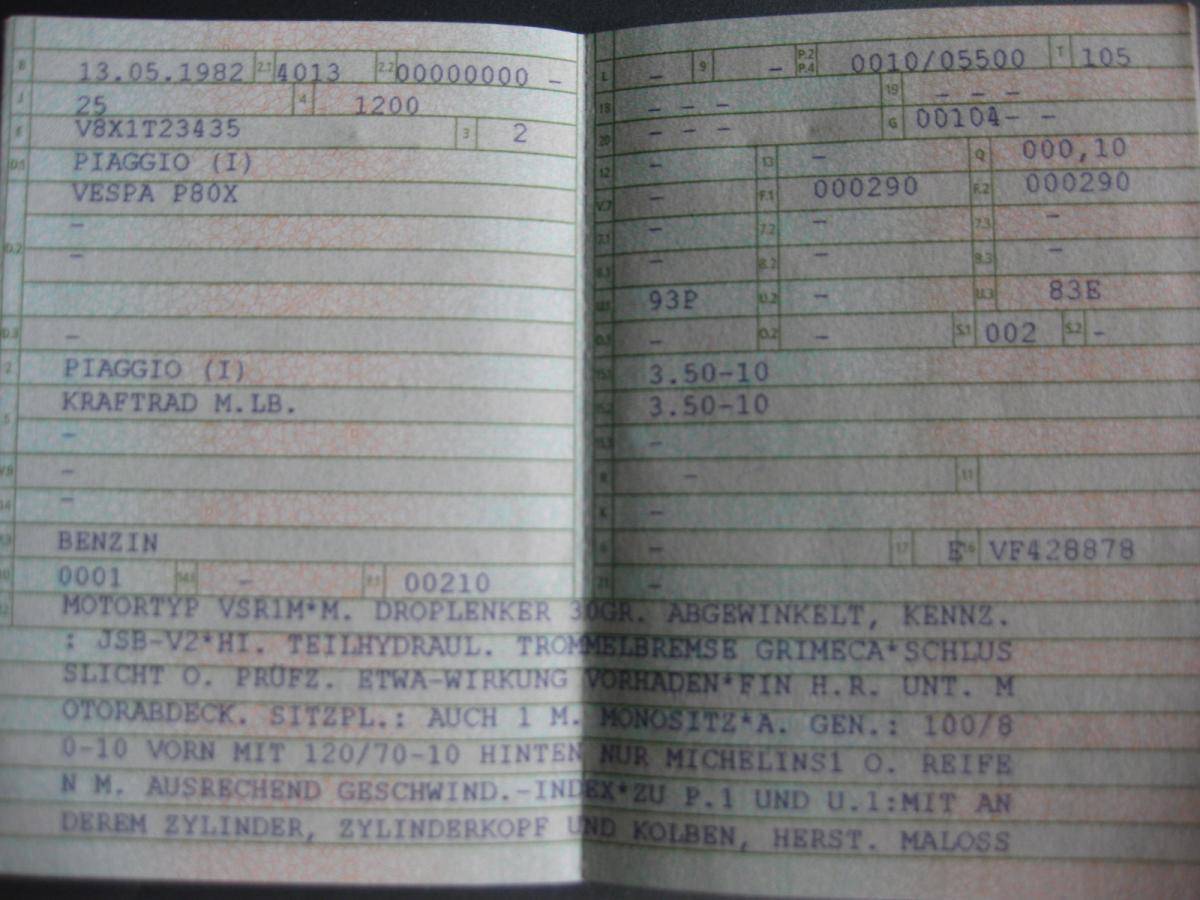 B 13.05.1982 2.1 4013 2.2 00000000 –
J 25 4 1200
E V8X1T23435 3 2
D.1 PIAGGIO (I)
VESPA P80X
–
D.2 –
D.3 –
2 PIAGGIO (I)
KRAFTRAD M.LB.
5 –
V.9 –
14 –
P.3 BENZIN
10 0001 14.1 – P.1 00210
L – 9 – P.2 P.4 0010/05500 T 105
18 – – – 19 – – –
20 – – – G 00104– –
12 – 13 – Q 000,10
V.7 – F.1 000290 F.2 000290
7.1 – 7.2 – 7.3 –
8.1 – 8.2 – 8.3 –
U.1 93P U.2 – U.3 83E
O.1 – O.2 – S.1 002 S.2 –
15.1 3.50–10
15.2 3.50–10
15.3 –
R – 11
K –
6 – 17 E 16 VF428878
21 –
22 MOTORTYP VSR1M*M. DROPLENKER 30GR. ABGEWINKELT, KENNZ.
: JSB-V2*HI. TEILHYDRAUL. TROMMELBREMSE GRIMECA*SCHLUS
SLICHT O. PRÜFZ. ETWA-WIRKUNG VORHADEN*FIN H.R. UNT. M
OTORABDECK. SITZPL.: AUCH 1 M. MONOSITZ*A. GEN.: 100/8
0-10 VORN MIT 120/70-10 HINTEN NUR MICHELINS1 O. REIFE
N M. AUSRECHEND GESCHWIND.-INDEX*ZU P.1 UND U.1:MIT AN
DEREM ZYLINDER, ZYLINDERKOPF UND KOLBEN, HERST. MALOSS